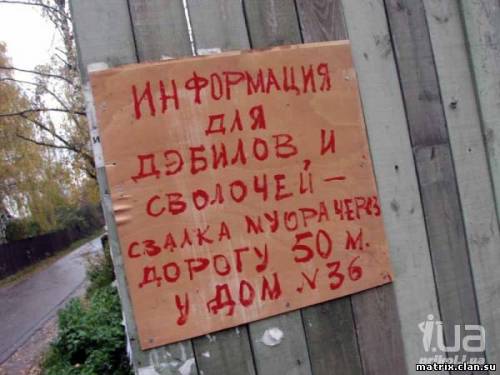 ИНФОРМАЦИЯ
ДЛЯ
ДЭБИЛОВ, И
СВОЛОЧЕЙ —
СВАЛКА МУСОРА ЧЕРЕЗ
ДОРОГУ 50 М.
У ДОМ N 36
iua
prikol.i.ua
matrix.clan.su